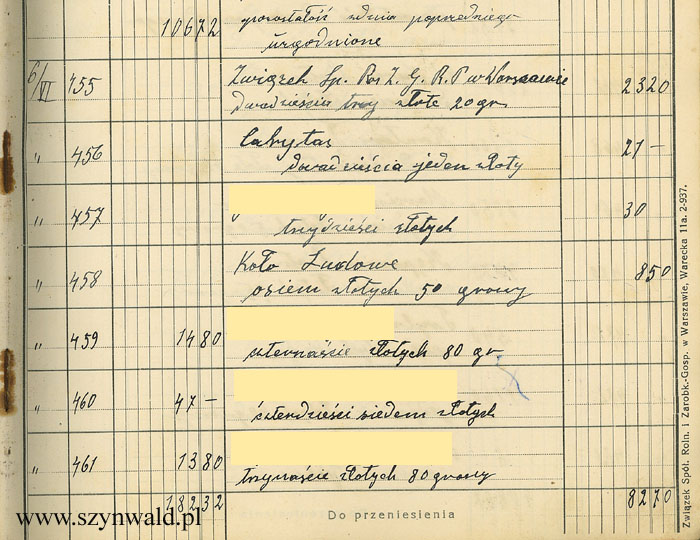 10672 pozostałość z dnia poprzedniego
uzgodnione
6/VI 155 Związek Sp. Roz. Z. G. R. P. w Warszawie 2320
dwadzieścia trzy złote 20 gr
" 456 Carytas 21 –
dwadzieścia jeden złoty
" 457 30
trzydzieści złotych
" 458 Koło Ludowe 850
osiem złotych 50 groszy
" 459 1480
czternaście złotych 80 gr
" 460 47 –
czterdzieści siedem złotych
" 461 1380
trzynaście złotych 80 groszy
18232 Do przeniesienia 8270
www.szynwald.pl
Związek Spół. Roln. i Zarobk.-Gosp. w Warszawie, Warecka 11a. 2-937.